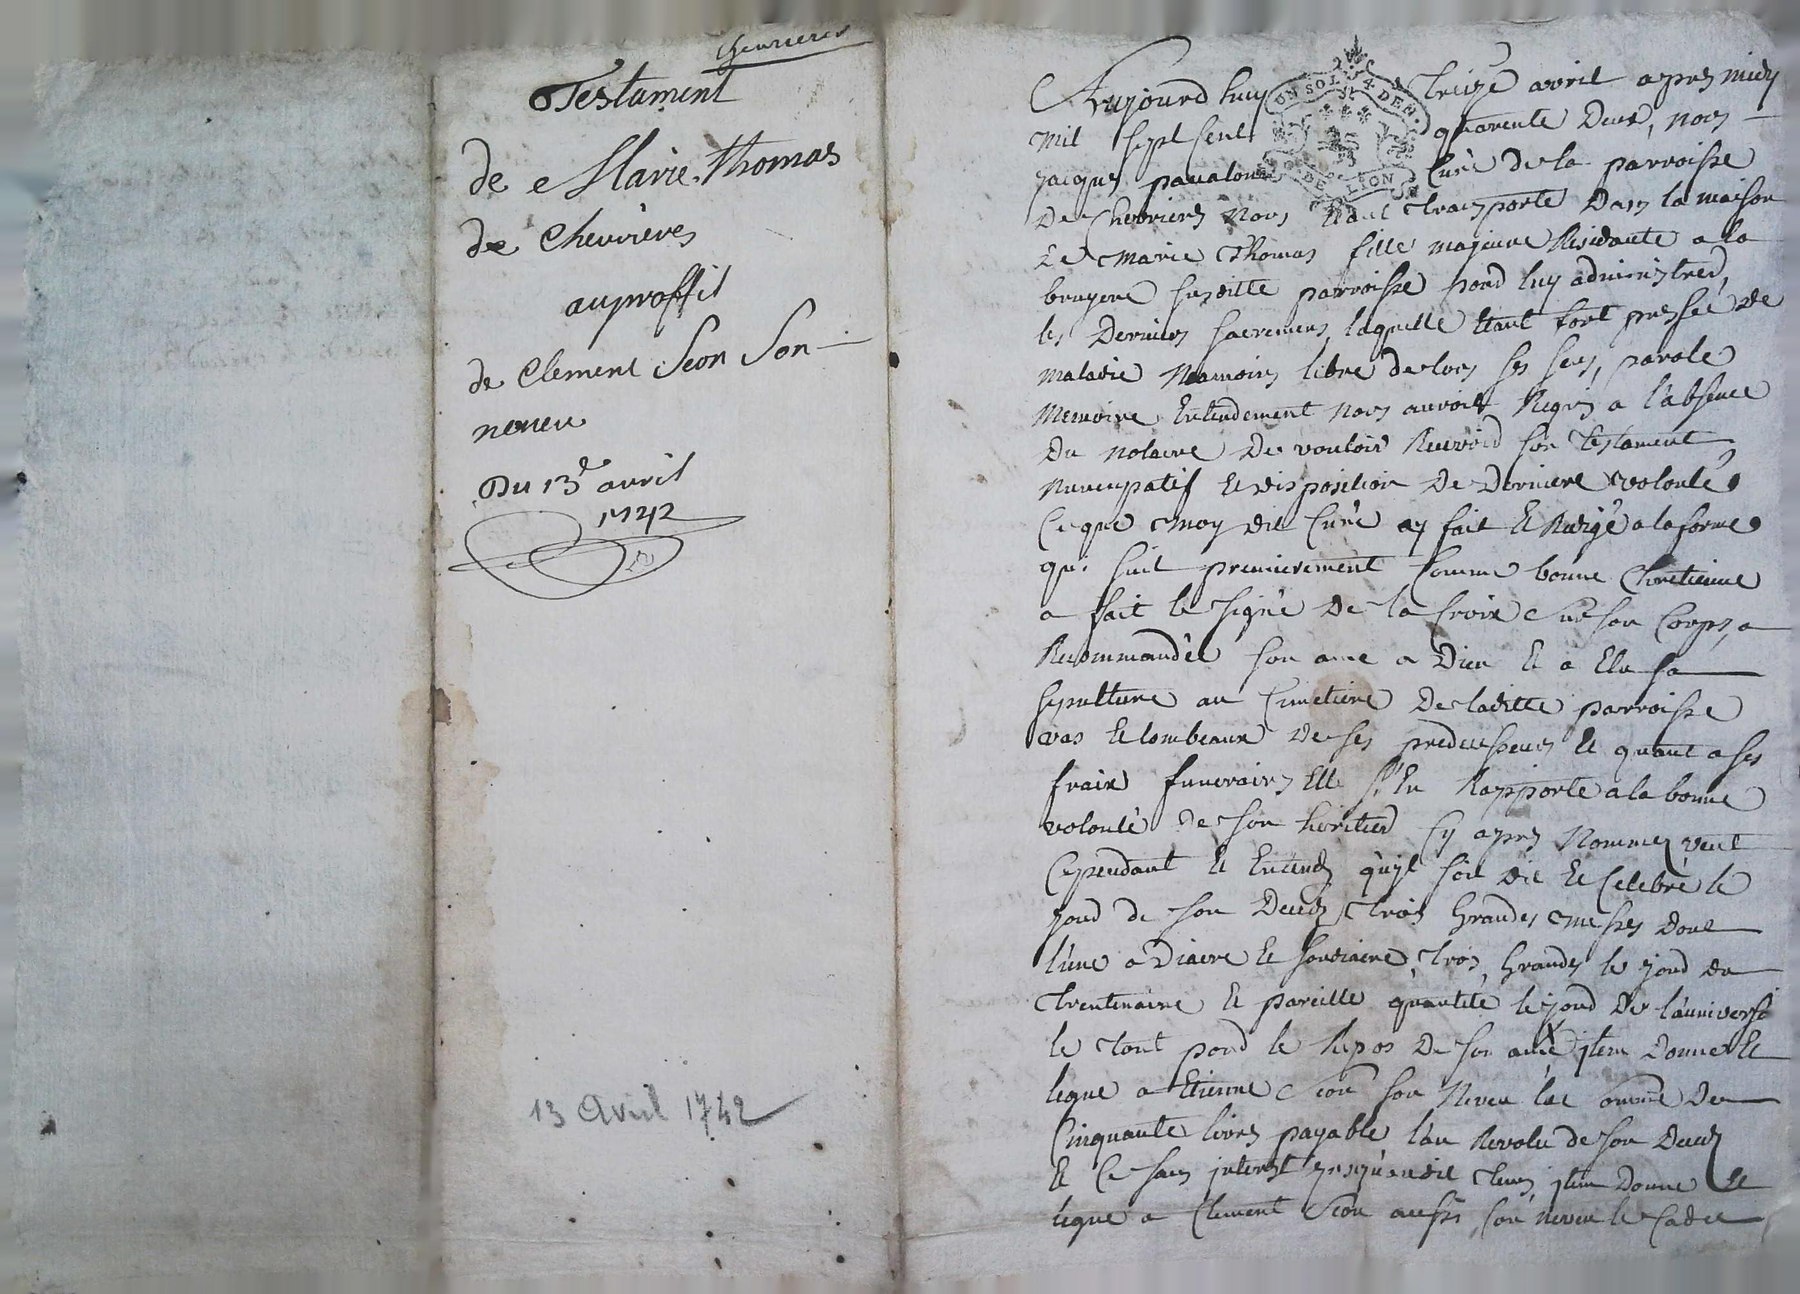 Chevrieres
Testament
de Marie Thomas
de Chevrieres
au proffit
de Clement Seon Son
neveu
Du 13e avril
1742
13 Avril 1742
UN SOL 4 DEN.
G. DE LION
Aujourd huy treize avril apres midy
mil sept cent quarente deux, nous
jacques curé de la parroisse
de Chevrieres nous étant transporté dans la maison
de Marie Thomas fille majeure Residante a la
bruyere susditte parroisse pour luy administrer
les derniers sacremens, laquelle étant fort pressée de
maladie néamoins libre de tous ses sens, parole
memoire Entendement nous auroit Requis a l'absence
du notaire de vouloir Recevoir son testament
nuncupatif et disposition de derniere volonté
Ce que moy dit Curé ay fait et Redigé a la forme
qui suit premierement comme bonne Chretienne
a fait le signe de la croix sur son Corps, a
Recommandée son ame a Dieu et a Elu sa
sepulture au Cimetiere de laditte parroisse
vas et tombeaux de ses predecesseurs et quant a ses
fraix funeraires Elle s'En Rapporte a la bonne
volonté de son heritier cy apres Nommez veut
Cependant et Entend qu'il soit dit et Celebré le
jour de son deceds trois Grandes messes dont
l'une a Diacre et soudiacre, trois Grandes le jour du
trentenaire et pareille quantité le jour de l'anniverse
le tout pour le Repos de son ame jtem donne et
legue a Etienne Seon son Neveu la somme de
Cinquante livres payable l'an Revolu de son deceds
et Ce sans interest jusqu'audit tems jtem donne et
legue a Clement Seon aussi son neveu le Cadet